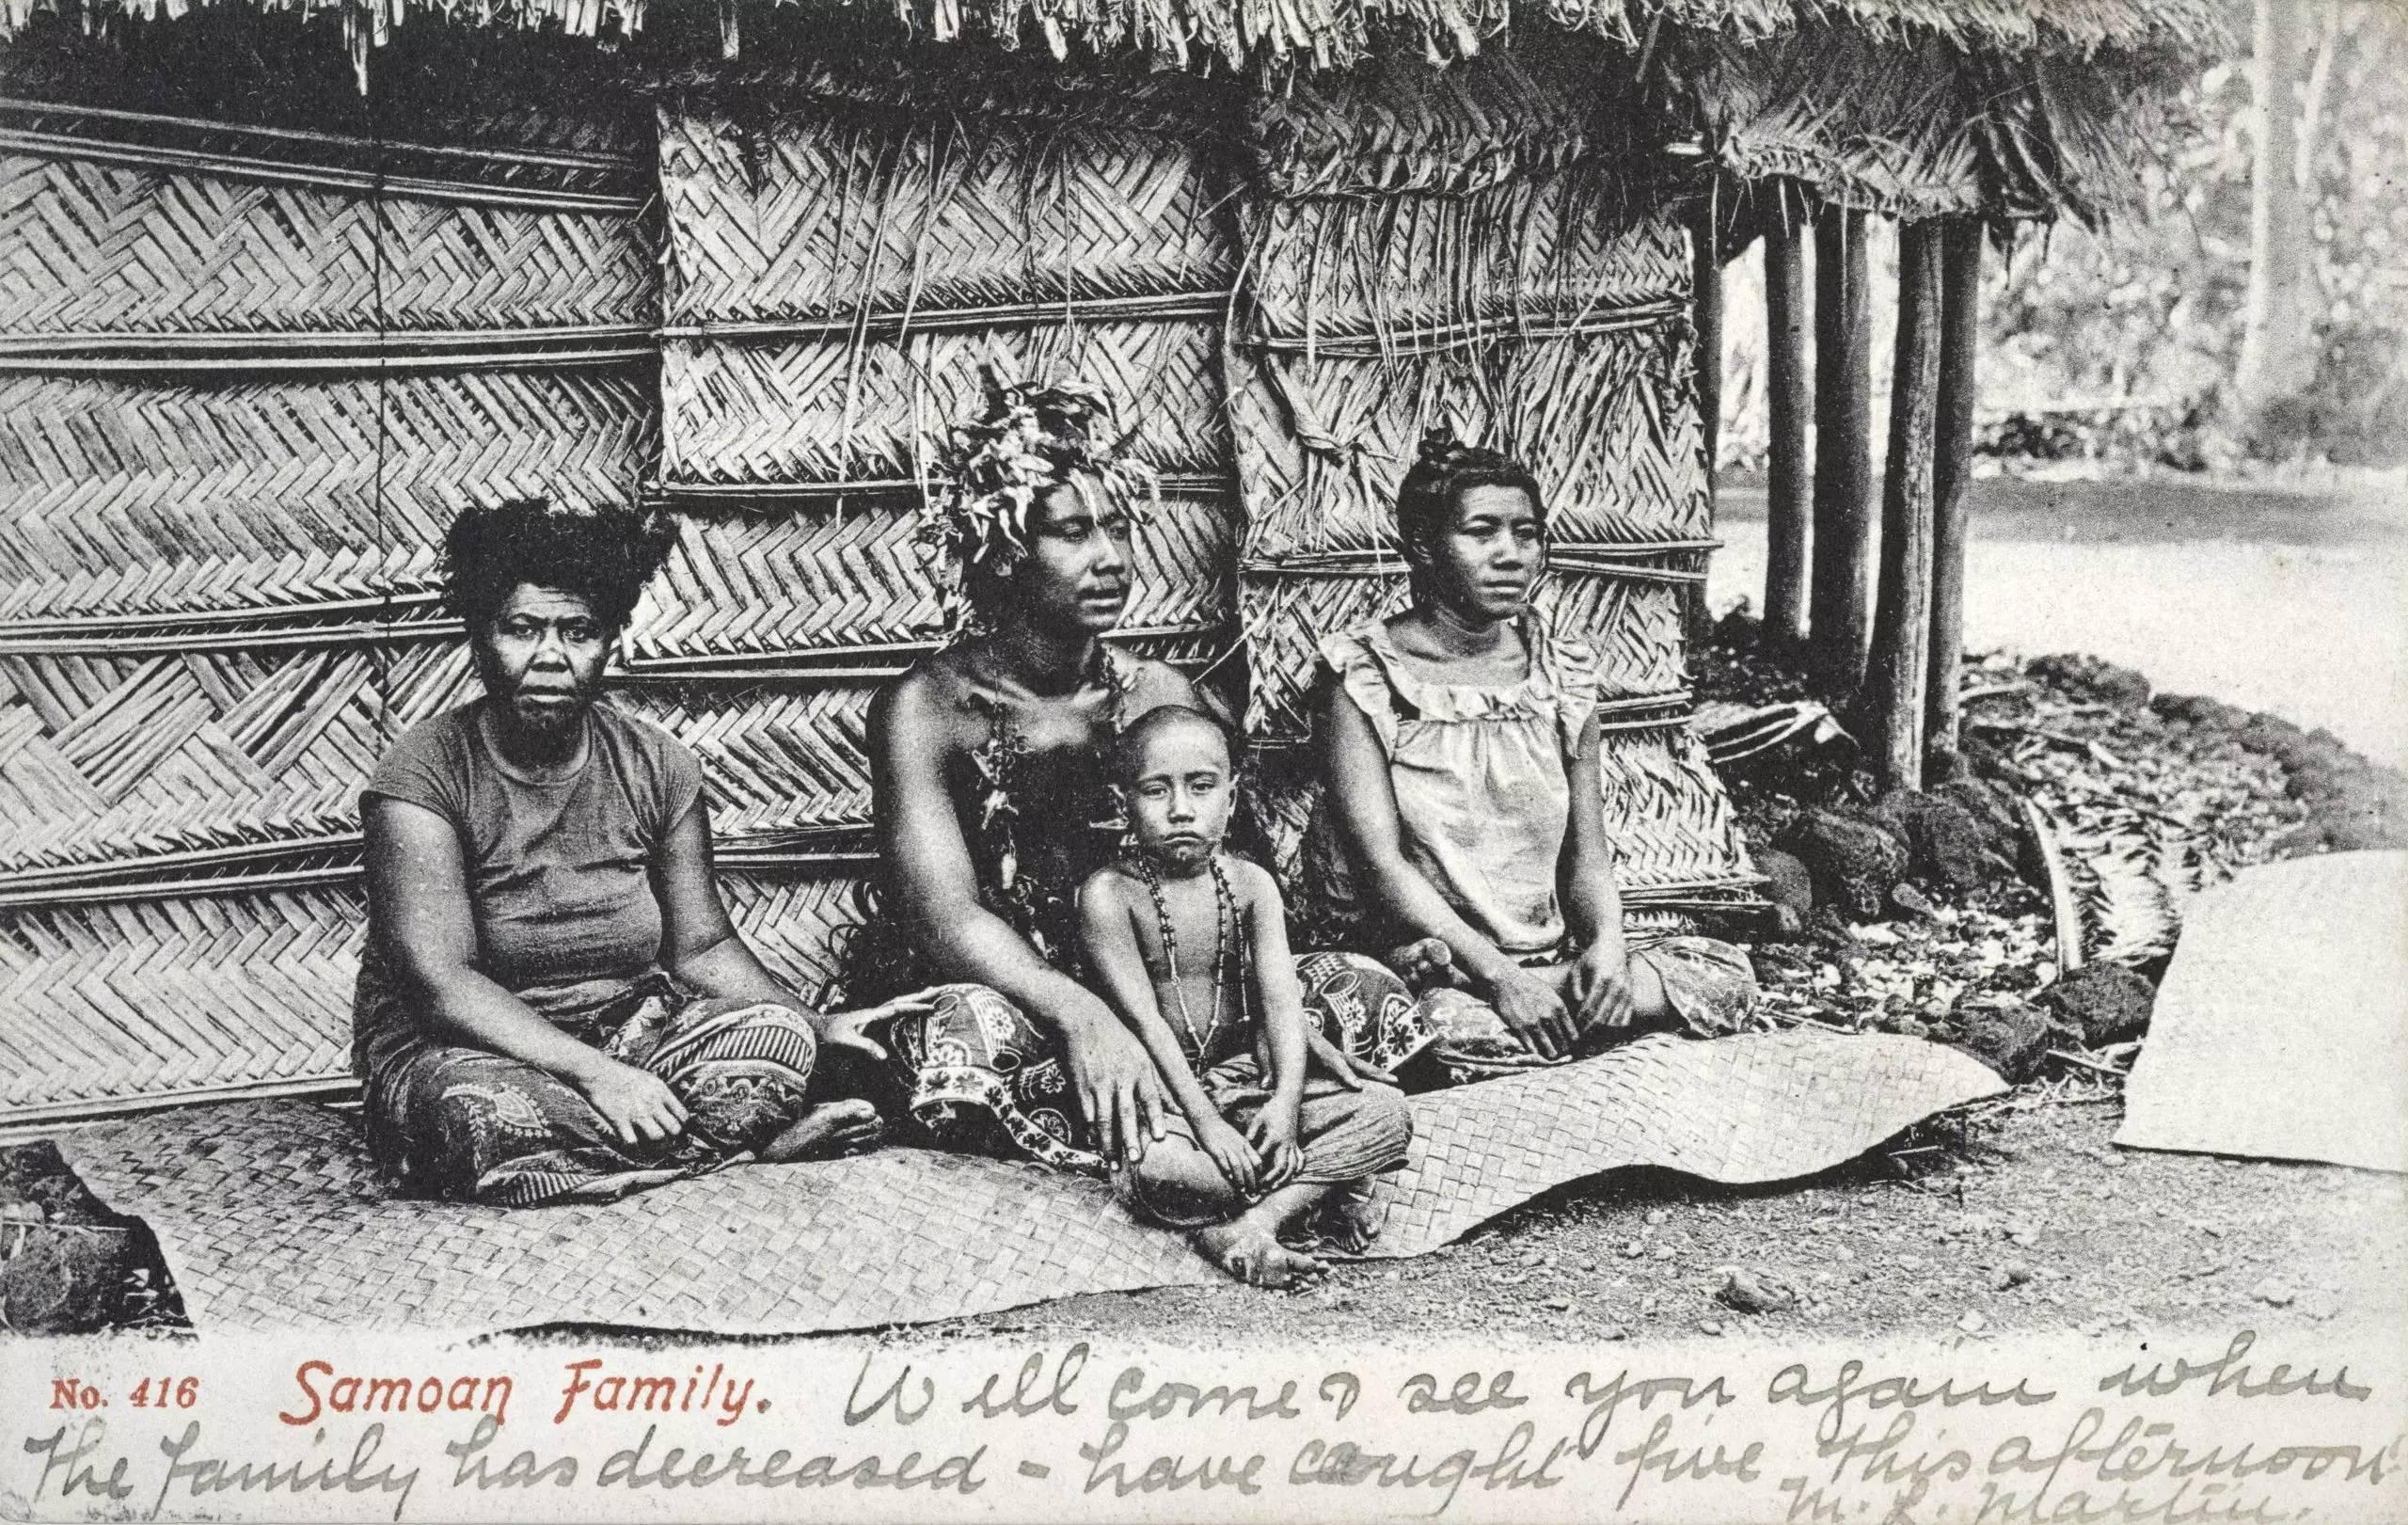 No. 416 Samoan Family. Will come & see you again when
the family has decreased - have caught five this afternoon
M. L. Martin.